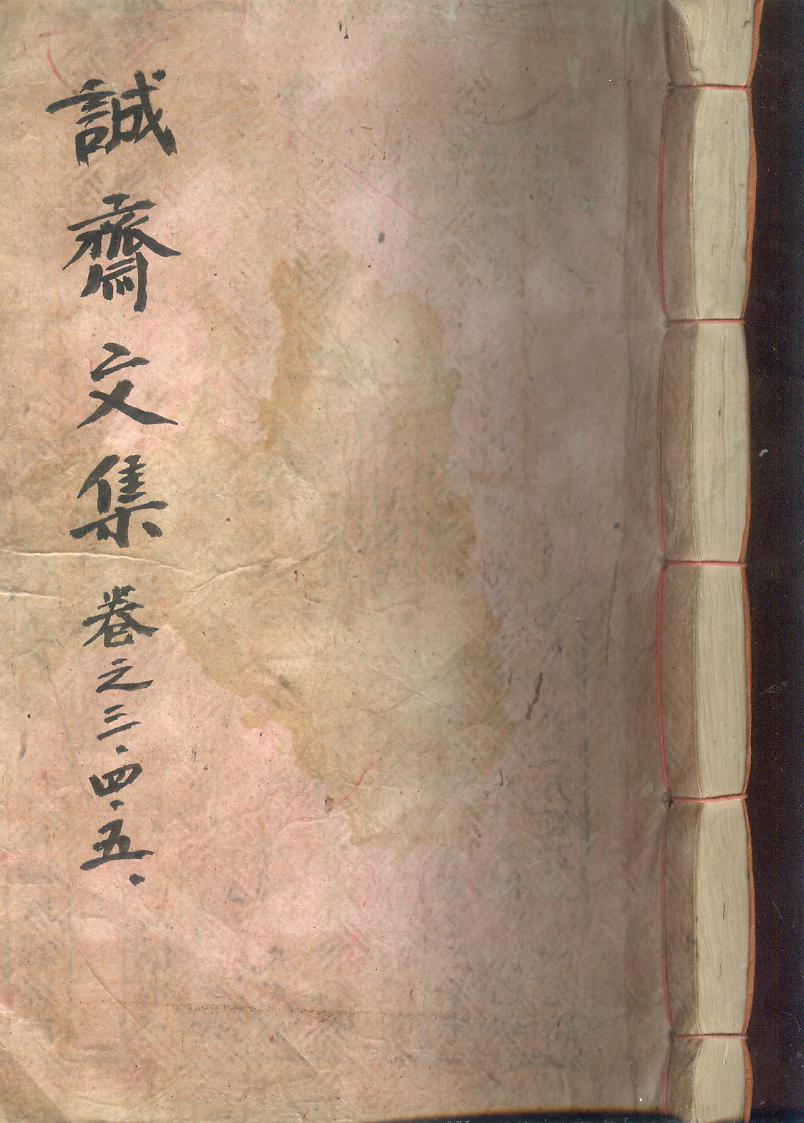 誠齋文集 卷之三、四、五、